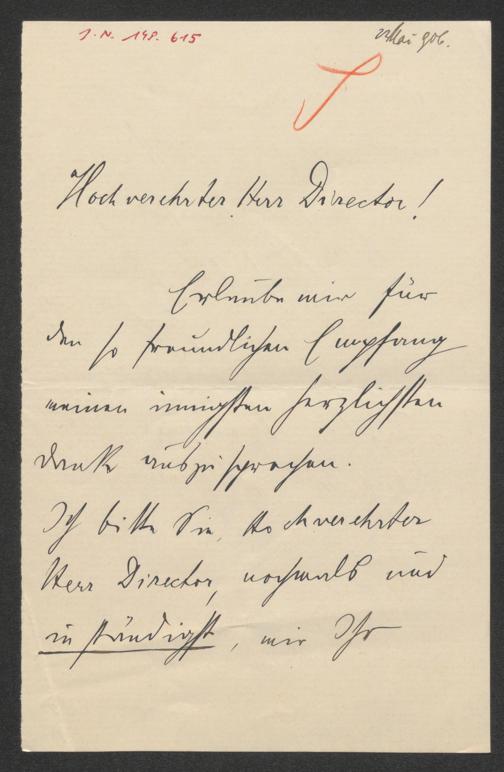 J.N. 148.615
22 Mai 906.
Hochverehrter Herr Director!
Erlaube mir für
den so freundlichen Empfang
meinen innigsten herzlichsten
Dank auszusprechen.
Ich bitte Sie, Hochverehrter
Herr Director, nochmals und
inständigst, mir Ihr